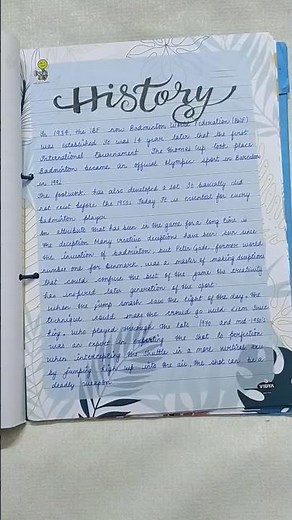 History
In 1934, the IBF now Badminton World Federation (BWF)
was established. It was 14 year later that the first
International tournament The Thomas cup took place.
Badminton became an official Olympic sport in Barcelona
in 1992
The footwork has also developed a lot. It basically did
not exist before the 1950s. Today it is essential for every
badminton player.
An attribute that has been in the game for a long time is
the deception. Many creative deceptions have been seen since
the invention of badminton, but Peter Gade, former world
number one for Denmark was a master of making deceptions
that could confuse the best of the game. His creativity
has inspired later generation of the sport.
When the jump smash saw the light of the day, the
technique could make the crowd go wild. Liem Swie
King, who played through the late 1970 and mid-1980's
was an expert in the shot to perfection
when intercepting the shuttle in a more vertical
by jumping high up into the air, the shot can be a
deadly weapon.
VIDYA